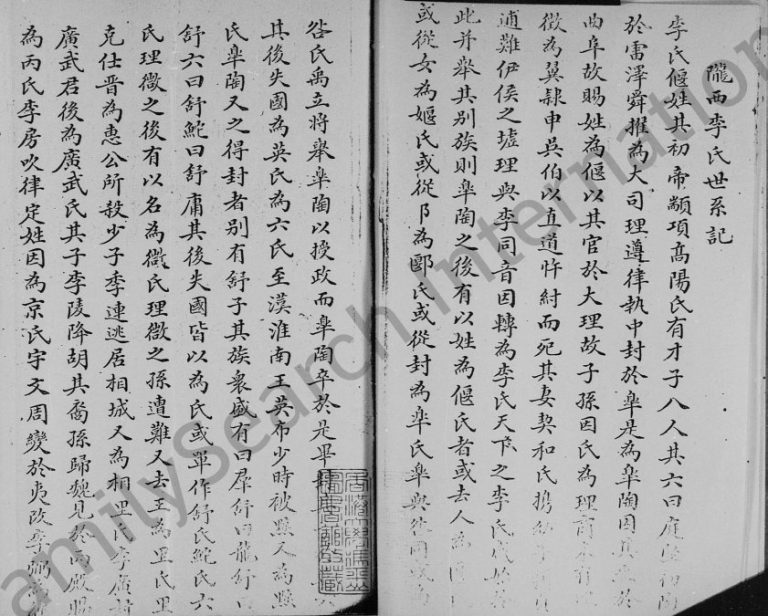 隴西李氏世系記
李氏偃姓其初帝顓頊髙陽氏有才子八人其六曰庭堅
於雷澤舜擢為大司理遵律執中封於臯是為臯陶因其
曲阜故賜姓為偃以其官於大理故子孫因氏為理
徵為翼隸申吳伯以直道忤紂而死其妻契和氏携
逋難伊侯之墟理與李同音因轉為李氏天下之李氏
此并舉其别族則臯陶之後有以姓為偃氏者或去人為
或從女為嫗氏或從阝為郾氏或從封為臯氏臯與咎同
咎氏禹立將舉臯陶以授政而臯陶卒於是畢
其後失國為英氏為六氏至漢淮南王英布少時被黥又為黥
氏臯陶又之得封者别有舒子其族衆盛有曰群舒曰龍舒
舒六曰舒鮀曰舒庸其後失國皆以為氏或單作舒氏鮀氏六
氏理徵之後有以名為徵氏理徵之孫遭難又去王為里氏里
克仕晋為惠公所殺少子季連逃居相城又為相里氏李廣
廣武君後為廣武氏其子李陵降胡其裔孫歸魏見於丙殿
為丙氏李房吹律定姓因為京氏宇文周變於夷改李弼
familysearch International